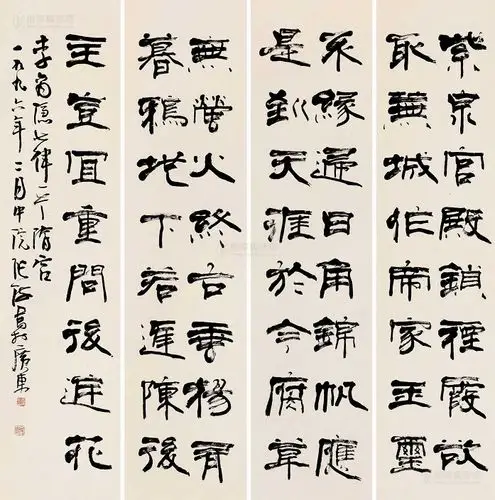 紫泉宮殿鎖煙霞欲
取蕪城作帝家玉璽
不緣歸日角錦帆應
是到天涯於今腐草
無螢火終古垂楊有
暮鴉地下若逢陳後
主豈宜重問後庭花
李商隱七律一首隋宮
一九九六年二月中浣書於廣東